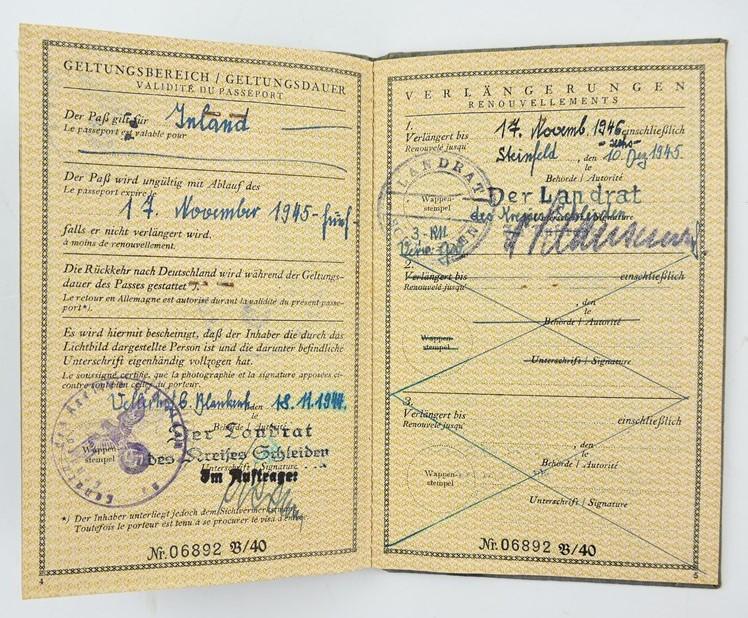 GELTUNGSBEREICH / GELTUNGSDAUER
VALIDITÉ DU PASSEPORT
Der Paß gilt für Inland
Le passeport est valable pour
Der Paß wird ungültig mit Ablauf des
Le passeport expire le
17. November 1945 - fünf -
falls er nicht verlängert wird.
à moins de renouvellement.
Die Rückkehr nach Deutschland wird während der Geltungs-
dauer des Passes gestattet *).
Le retour en Allemagne est autorisé durant la validité du présent passe-
port *).
Es wird hiermit bescheinigt, daß der Inhaber die durch das
Lichtbild dargestellte Person ist und die darunter befindliche
Unterschrift eigenhändig vollzogen hat.
Le soussigné certifie, que la photographie et la signature apposées ci-
contre sont bien celles du porteur.
b. Blankenh. den 18. 11. 1944.
Behörde / Autorité
Der Landrat
Wappen-
stempel
des Kreises Schleiden
Unterschrift / Signature
Im Auftrage:
*) Der Inhaber unterliegt jedoch dem Sichtvermerkszwang
Toutefois le porteur est tenu à se procurer le visa d'entrée
Nr. 06892 B/40
4
VERLÄNGERUNGEN
RENOUVELLEMENTS
1.
Verlängert bis 17. Novemb. 1946 einschließlich
Renouvelé jusqu' - sechs -
Steinfeld, den 10. Dez 1945.
le
Behörde / Autorité
LANDRAT
Wappen-
stempel
Der Landrat
des Kreises Schleiden
Unterschrift / Signature
3.- RM
2.
Verlängert bis einschließlich
Renouvelé jusqu'
, den
le
Behörde / Autorité
Wappen-
stempel
Unterschrift / Signature
3.
Verlängert bis einschließlich
Renouvelé jusqu'
, den
le
Behörde / Autorité
Wappen-
stempel
Unterschrift / Signature
Nr. 06892 B/40
5